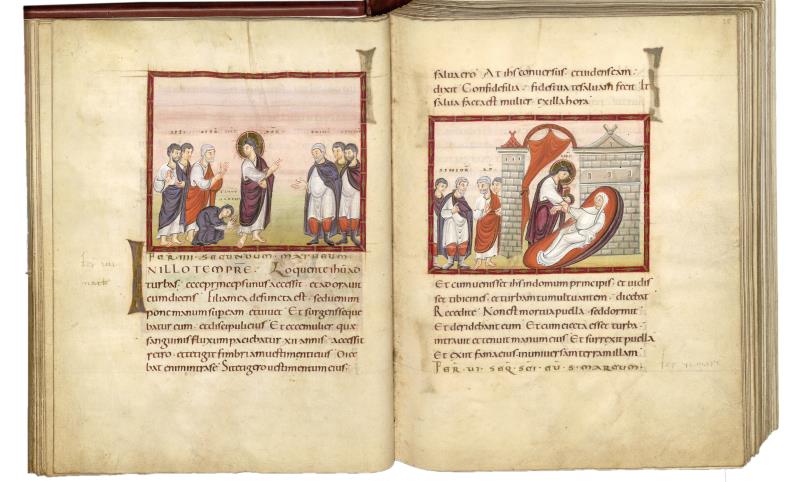 FER IIII SECUNDUM MATHEUM
IN ILLO TEMPRE Loquente ihu ad
turbas ecce princeps unus accessit et adoravit
eum dicens Filia mea defuncta est sed veni im
pone manum super eam et vivet Et surgens ihs seque
batur eum et discipuli eius Et ecce mulier quae
sanguinis fluxum patiebatur xii annis accessit
retro et tetigit fimbriam vestimenti eius Dice
bat enim intra se Si tetigero vestimentum eius
salva ero At ihs conversus et videns eam
dixit Confide filia fides tua te salvam fecit Et
salva facta est mulier ex illa hora
Et cum venisset ihs in domum principis et vidis
set tibicines et turbam tumultuantem dicebat
Recedite Non est mortua puella sed dormit
Et deridebant eum Et cum eiecta esset turba
intravit et tenuit manum eius Et surrexit puella
Et exiit fama eius in universam terram illam
FER VI SEQ SCI EU S MARCUM